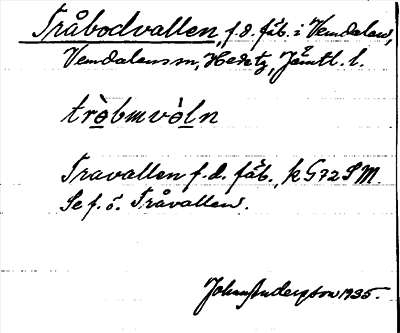 Tråbodvallen, f.d. fäb. i Vemdalen,
Vemdalens sn, Heds tg, Jämtl. l.
tròbmvòln
Travallen f.d. fäb., k G72SM.
Se f. ö. Tråvallen.
Johan Anderzson 1935.